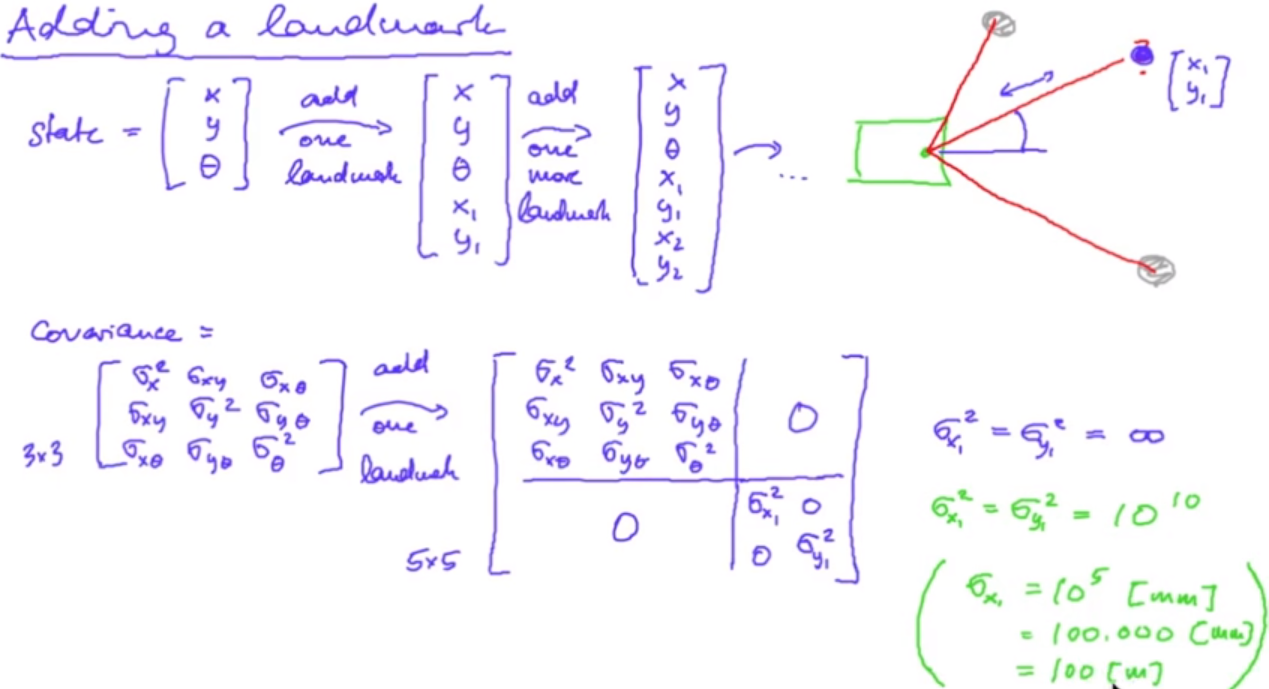 Adding a landmark
state = [x y θ] add one landmark → [x y θ x₁ y₁] add one more landmark → [x y θ x₁ y₁ x₂ y₂] → ...
[x₁ y₁]
Covariance =
3x3
[σx² σxy σxθ
σxy σy² σyθ
σxθ σyθ σθ²]
add one landmark →
5x5
[σx² σxy σxθ | 0
σxy σy² σyθ |
σxθ σyθ σθ² |
0 | σx₁² 0
| 0 σy₁²]
σx₁² = σy₁² = ∞
σx₁² = σy₁² = 10¹⁰
(σx₁ = 10⁵ [mm]
= 100.000 [mm]
= 100 [m])